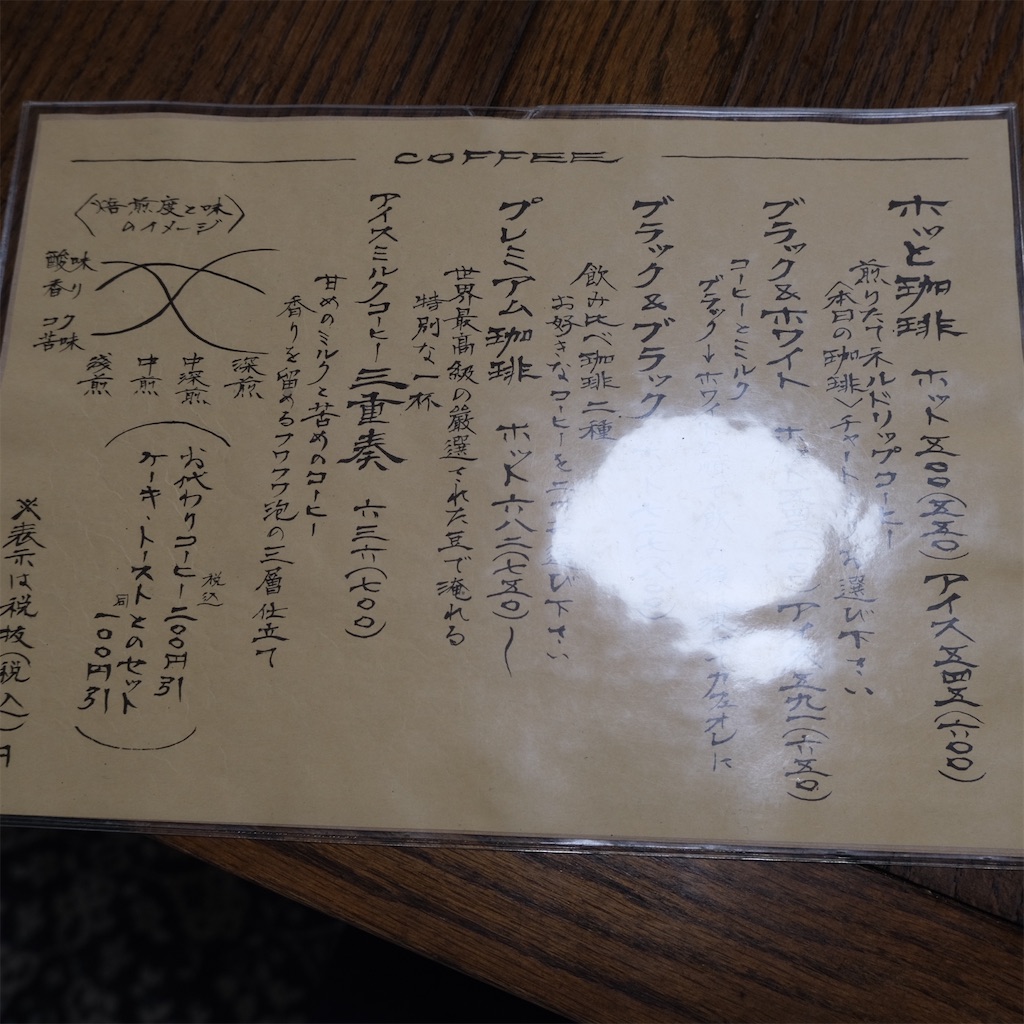 COFFEE
ホッと珈琲 ホット五〇〇(五五〇) アイス五四五(六〇〇)
煎りたてネルドリップコーヒー
〈本日の珈琲〉チャート 選び下さい
ブラック&ホワイト アイス五九一(六五〇)
コーヒーとミルク
ブラック→ホワイ カフェオレに
ブラック&ブラック
飲み比べ珈琲二種
お好きなコーヒーを二 び下さい
プレミアム珈琲 ホット六八二(七五〇)〜
世界最高級の厳選された豆で淹れる
特別な一杯
アイスミルクコーヒー三重奏 六三六(七〇〇)
甘めのミルクと苦めのコーヒー
香りを留めるフワフワ泡の三層仕立て
〈焙煎度と味
のイメージ〉
酸味
香り
コク
苦味
浅煎 中煎 中深煎 深煎
お代わりコーヒー税込二〇〇円引
ケーキ、トーストとのセット
同一〇〇円引
※表示は税抜(税入)円